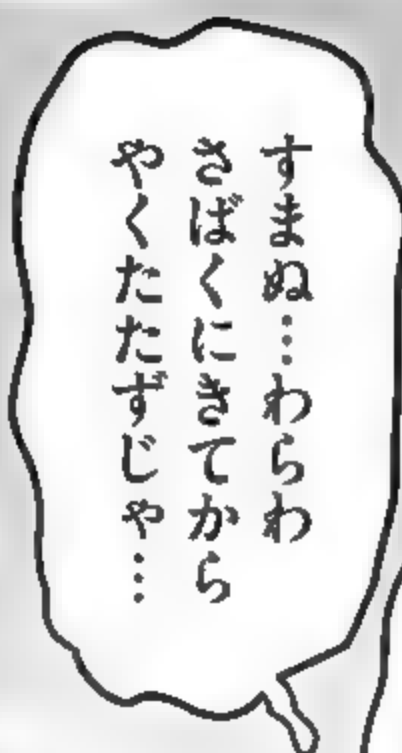 すまぬ…わらわ
さばくにきてから
やくたたずじゃ…